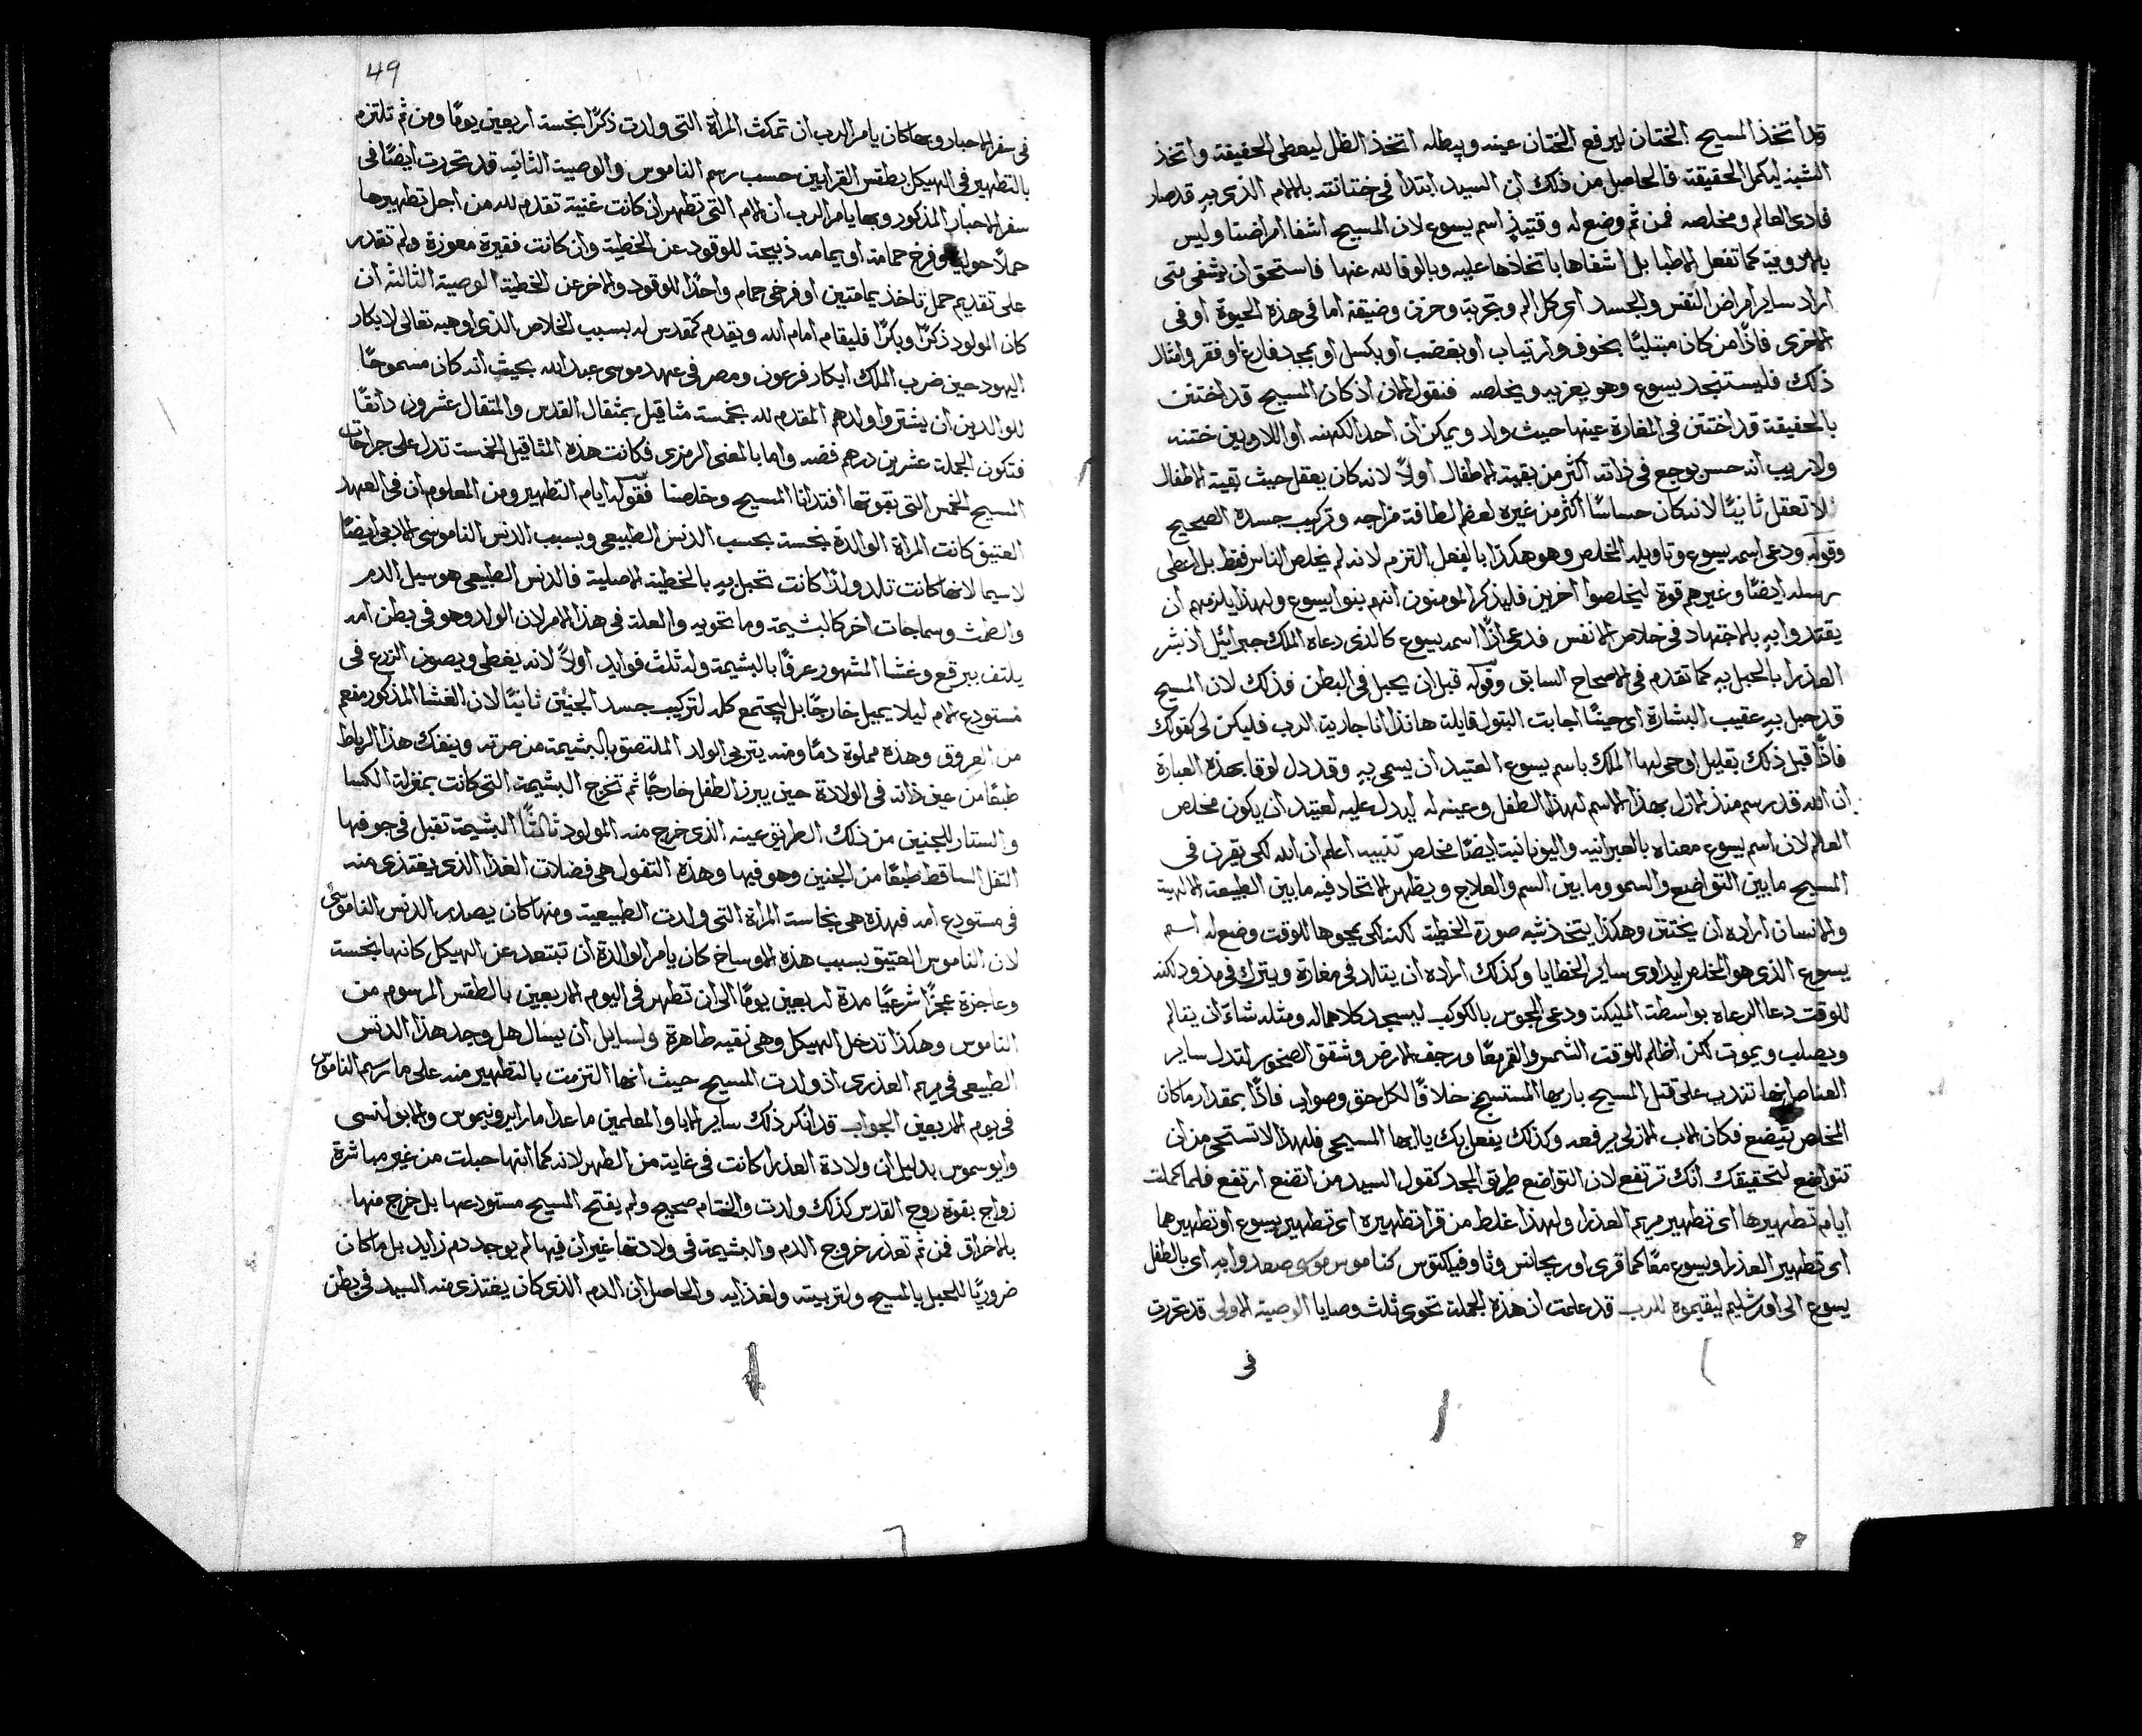 قد اتخذ المسيح الختان ليرفع الختان عينه ويبطله اتخذ الظل ليعطى الحقيقة واتخذ
الشبه ليكمل الحقيقة فالحاصل من ذلك ان السيد ابتدا فى ختانته بالالام الذى به قد صار
فادى العالم ومخلصه فمن ثم وضع له وقتيذٍ اسم يسوع لان المسيح اشفا امراضنا وليس
بالادوية كما تفعل الاطبا بل اشفاها باتخاذها عليه وبالوفا لله عنها فاستحق ان يشفى متى
اراد ساير امراض النفس والجسد اى كل الم وتجربة وحزن وضيقة اما فى هذه الحيوة او فى
الاخرى فاذًا من كان مبتليًا بخوف وارتياب او بغضب او بكسل او بمجد فارغ او فقر وامثال
ذلك فليستنجد يسوع وهو يعزيه ويخلصه فنقول الان اذ كان المسيح قد اختتن
بالحقيقة قد اختتن فى المغارة عينها حيث ولد ويمكن ان احد الكهنه او اللاويين ختنه
ولا ريب انه حس بوجع فى ذاته اكثر من بقية الاطفال اولاً لانه كان يعقل حيث بقية الاطفال
لا تعقل ثانيًا لانه كان حساسًا اكثر من غيره لعظم لطافة مزاجه وتركيب جسده الصحيح
وقوله ودعى اسمه يسوع وتاويله المخلص وهو هكذا بالفعل التزم لانه لم يخلص الناس فقط بل اعطى
رسله ايضًا وغيرهم قوة ليخلصوا اخرين فليذكر المومنون انهم بنوا يسوع ولهذا يلزمهم ان
يقتدوا به بالاجتهاد فى خلاص الانفس فدعى اذًا اسمه يسوع كالذى دعاه الملك جبرائيل اذ بشر
العذرا بالحبل به كما تقدم فى الاصحاح السابق وقوله قبل ان يحبل فى البطن فذلك لان المسيح
قد حبل به عقيب البشارة اى حينما اجابت البتول قايلة هانذا انا جارية الرب فليكن لى كقولك
فاذًا قبل ذلك بقليل اوحى ليها الملك باسم يسوع العتيد ان يسمى به وقد دل لوقا بهذه العبارة
ان الله قد رسم منذ الازل بهذا الاسم لهذا الطفل وعينه له ليدل عليه لعتيد ان يكون مخلص
العالم لان اسم يسوع معناه بالعبرانيه واليونانية ايضًا مخلص تنبيه اعلم ان الله لكى يقرن فى
المسيح ما بين التواضع والسمو وما بين السم والعلاج ويظهر الاتحاد فيه ما بين الطبيعة الالهية
والانسان اراده ان يختتن وهكذا يتخذ شبه صورة الخطية لكنه لكى يمحوها للوقت وضع له اسم
يسوع الذى هو المخلص ليداوى ساير الخطايا وكذلك اراده ان يتالد فى مغارة ويترك فى مذود لكنه
للوقت دعا الرعاه بواسطة المليكة ودعى المجوس بالكوكب ليسجد كلاهما له ومثله شاء ان يتالم
ويصلب ويموت لكن اظلم للوقت الشمس والقمر معًا ورجف الارض وشقق الصخور لتدل ساير
العناصر انها تندب على قتل المسيح باريها المستسبح خلافًا لكل حق وصواب فاذًا بمقدار ما كان
المخلص يتضع فكان الاب الازلى يرفعه وكذلك يفعل بك يا ايها المسيحى فلهذا لا تستحى من ان
تتواضع لتحقيقك انك ترتفع لان التواضع طريق المجد كقول السيد من اتضع ارتفع فلما كملت
ايام تطهيرها اى تطهير مريم العذرا ولهذا غلط من قرا تطهيره اى تطهير يسوع او تطهيرهما
اى تطهير العذرا ويسوع معًا كما قرى اوريجانس وثاوفيلكتوس كناموس موسى صعدوا به اى بالطفل
يسوع الى اورشليم ليقيموه للرب قد علمت ان هذه الجملة تحوى ثلث وصايا الوصية الاولى قد تحررت
فى
49
فى سفر الاحبار وبها كان يامر الرب ان تمكث المراة التى ولدت ذكرًا نجسة اربعين يومًا ومن ثم تلتزم
بالتطهير فى الهيكل بطقس القرابين حسب رسم الناموس والوصية الثانيه قد تحررت ايضًا فى
سفر الاحبار المذكور وبها يامر الرب ان الام التى تطهر ان كانت غنية تقدم لله من اجل تطهيرها
حملاً حوليًا وفرخ حمامة او يمامه ذبيحة للوقود عن الخطية وان كانت فقيرة معوزة ولم تقدر
على تقديم حمل تاخذ يمامتين او فرخى حمام واحدًا للوقود والاخر عن الخطية الوصية الثالثه ان
كان المولود ذكرًا وبكرًا فليقام امام الله ويقدم كمقدس له بسبب الخلاص الذى اوهبه تعالى لابكار
اليهود حين ضرب الملك ابكار فرعون ومصر فى عهد موسى عبد الله بحيث انه كان مسموحًا
للوالدين ان يشتروا ولدهم المقدم لله بخمسة مثاقيل بمثقال القدس والمثقال عشرون دانقًا
فتكون الجملة عشرين درهم فضه واما بالمعنى الرمزى فكانت هذه المثاقيل الخمسة تدل على جراحات
المسيح الخمس التى بقوتها افتدانا المسيح وخلصنا فقوله ايام التطهير ومن المعلوم ان فى العهد
العتيق كانت المراة الوالدة نجسة بحسب الدنس الطبيعى وبسبب الدنس الناموسى الادبى ايضًا
لا سيما لانها كانت تلد ولدًا كانت تحبل به بالخطية الاصلية فالدنس الطبيعى هو سيل الدم
والطمث وسماجات اخر كالبشيمة وما تحويه والعلة فى هذا الامر لان الولد وهو فى بطن امه
يلتف ببرقع وغشا المشهور عرفًا بالبشيمة وله ثلث فوايد اولاً لانه يغطى ويصون الزرع فى
مستودع الام ليلا يميل خارجًا بل ليجتمع كله لتركيب جسد الجنين ثانيًا لان الغشا المذكور مفعم
من العروق وهذه مملوة دمًا ومنه يتربى الولد الملتصق بالبشيمة من صرته وينفك هذا الرباط
طبعًا من عين ذاته فى الولادة حين يبرز الطفل خارجًا ثم تخرج البشيمة التى كانت بمنزلة الكسا
والستار للجنين من ذلك الطريق عينه الذى خرج منه المولود ثالثًا البشيمة تقبل فى جوفها
التفل الساقط طبعًا من الجنين وهو فيها وهذه التفول هى فضلات الغذا الذى يغتذى منه
فى مستودع امه فهذه هى نجاسة المراة التى ولدت الطبيعية ومنها كان يصدر الدنس الناموسى
لان الناموس العتيق بسبب هذه الاوساخ كان يامر الوالدة ان تبتعد عن الهيكل كانها نجسة
وعاجزة عجزًا شرعيًا مدة اربعين يومًا الى ان تطهر فى اليوم الاربعين بالطقس المرسوم من
الناموس وهكذا تدخل الهيكل وهى نقيه طاهرة ولسايل ان يسال هل وجد هذا الدنس
الطبيعى فى مريم العذرى اذ ولدت المسيح حيث انها التزمت بالتطهير منه على ما رسم الناموس
فى يوم الاربعين الجواب قد انكر ذلك ساير الابا والمعلمين ما عدا مار ايرونيموس
بدليل ان ولادة العذرا كانت فى غاية من الطهر لانه كما انها حبلت من غير مباشرة
زواج بقوة روح القدس كذلك ولدت والختام صحيح ولم يفتح المسيح مستودعها بل خرج منها
بالاخراق فمن ثم تعذر خروج الدم والبشيمة فى ولادتها غير ان فيها لم يوجد دم زايد بل ما كان
ضروريًا للحبل بالمسيح ولتربيته ولغذايه والحاصل ان الدم الذى كان يغتذى منه السيد فى بطن